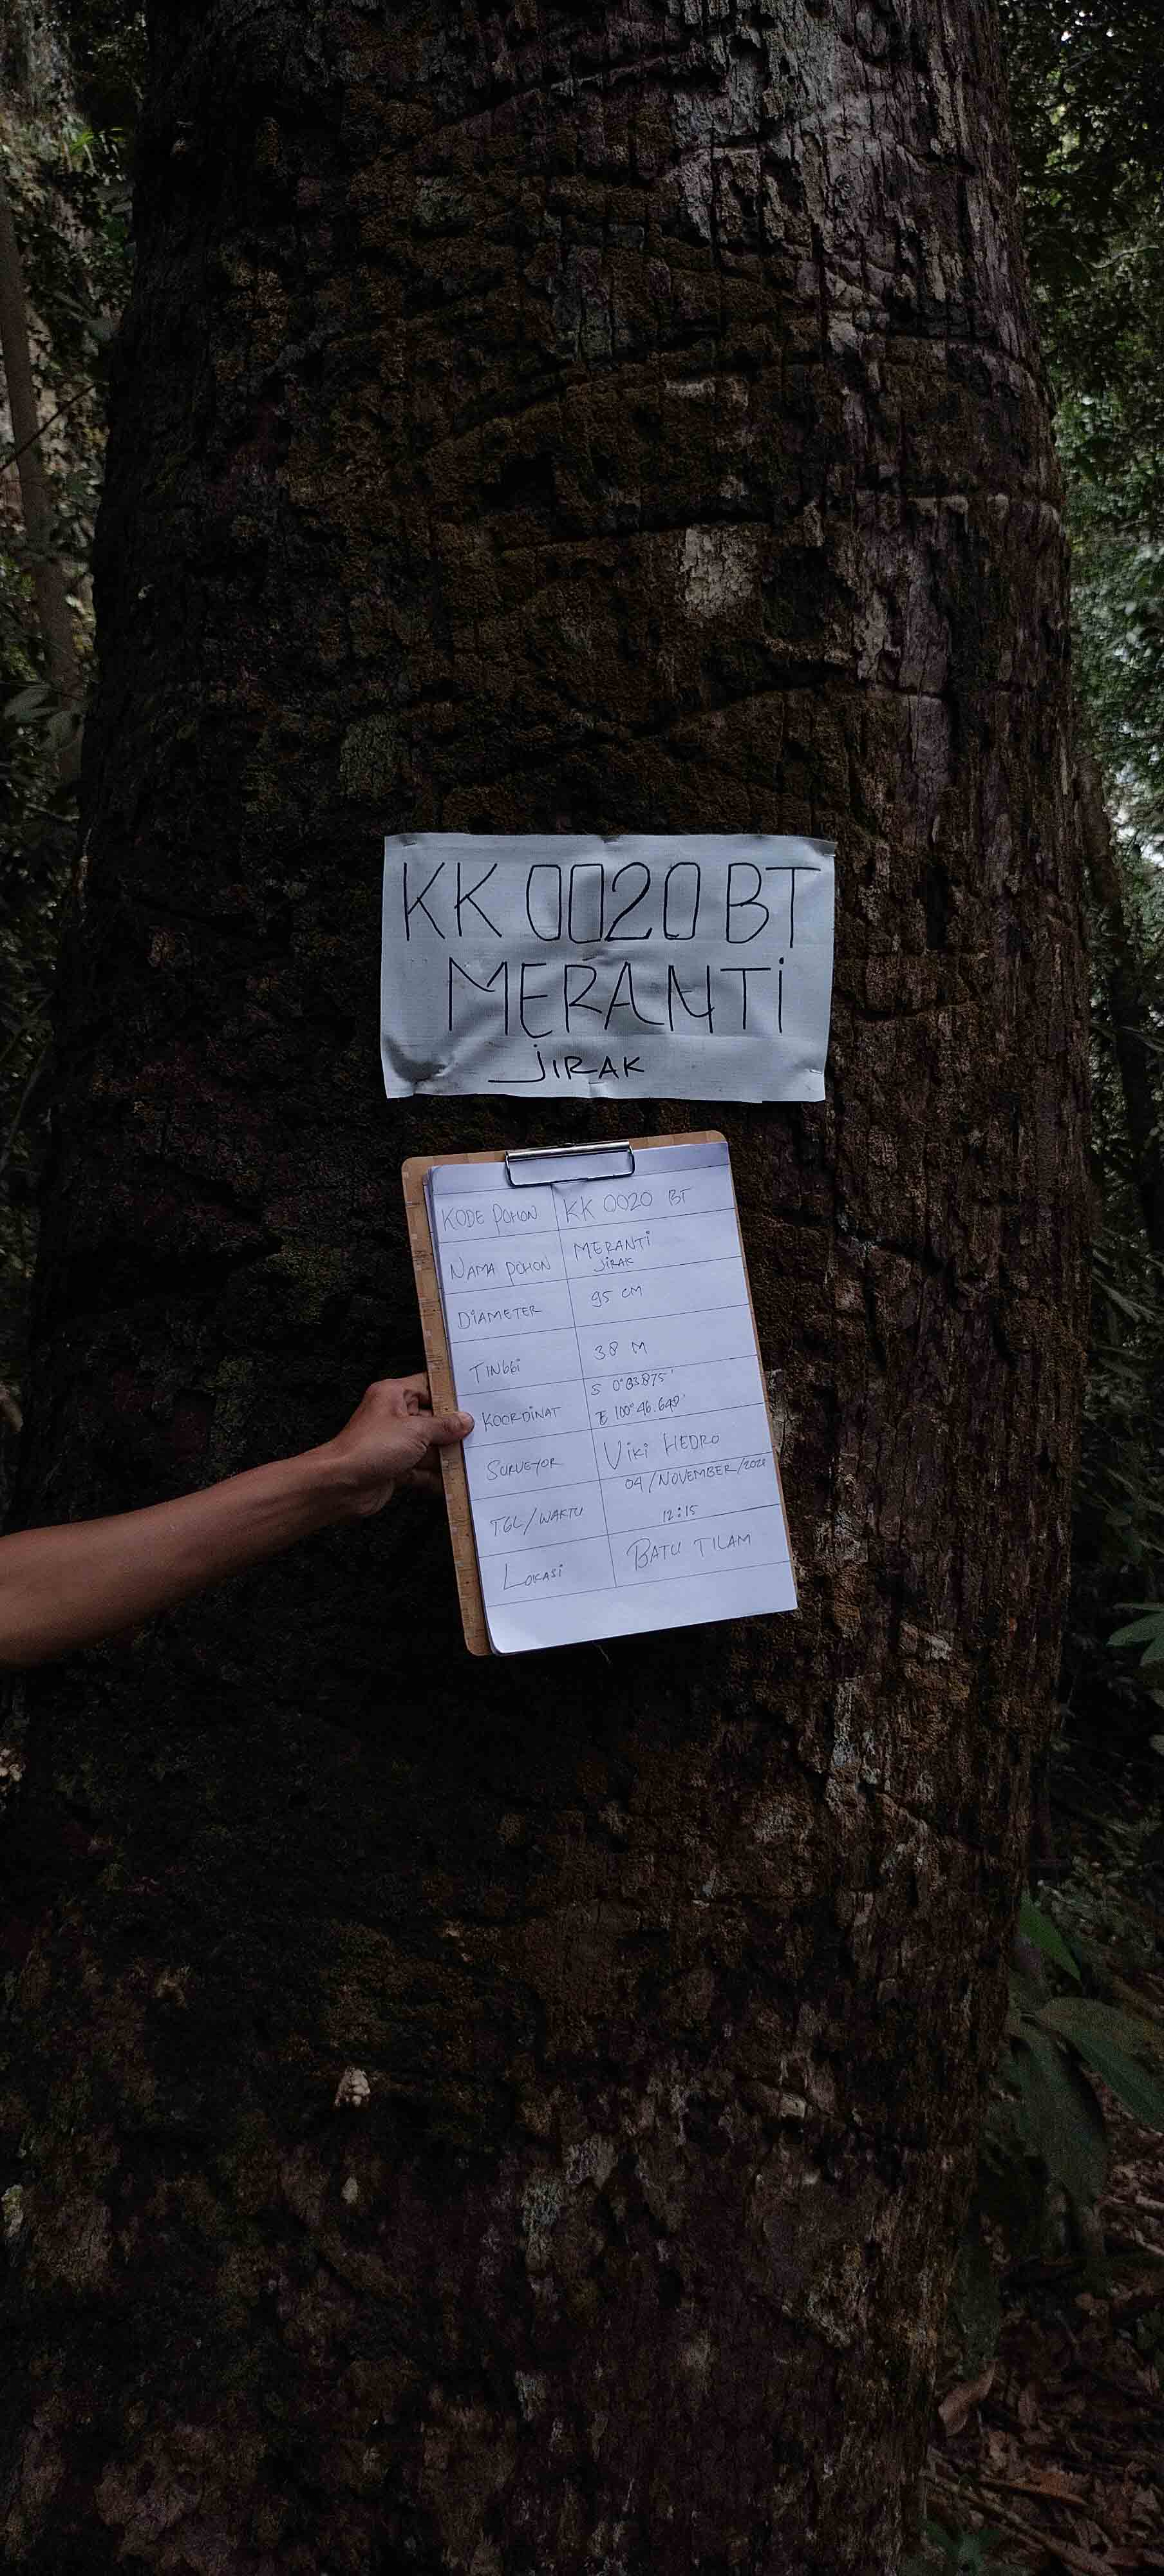 KK 0020 BT
MERANTi
jiRAK
KODE POHON KK 0020 BT
NAMA POHON MERANTi
JiRAK
DiAMETER 95 CM
TiNGGi 38 M
KOORDiNAT S 0°
E 100° 46.649'
SURVEYOR ViKi HEDRO
TGL/WAKTU 04/NOVEMBER/
12:15
LOKASi BATU TILAM